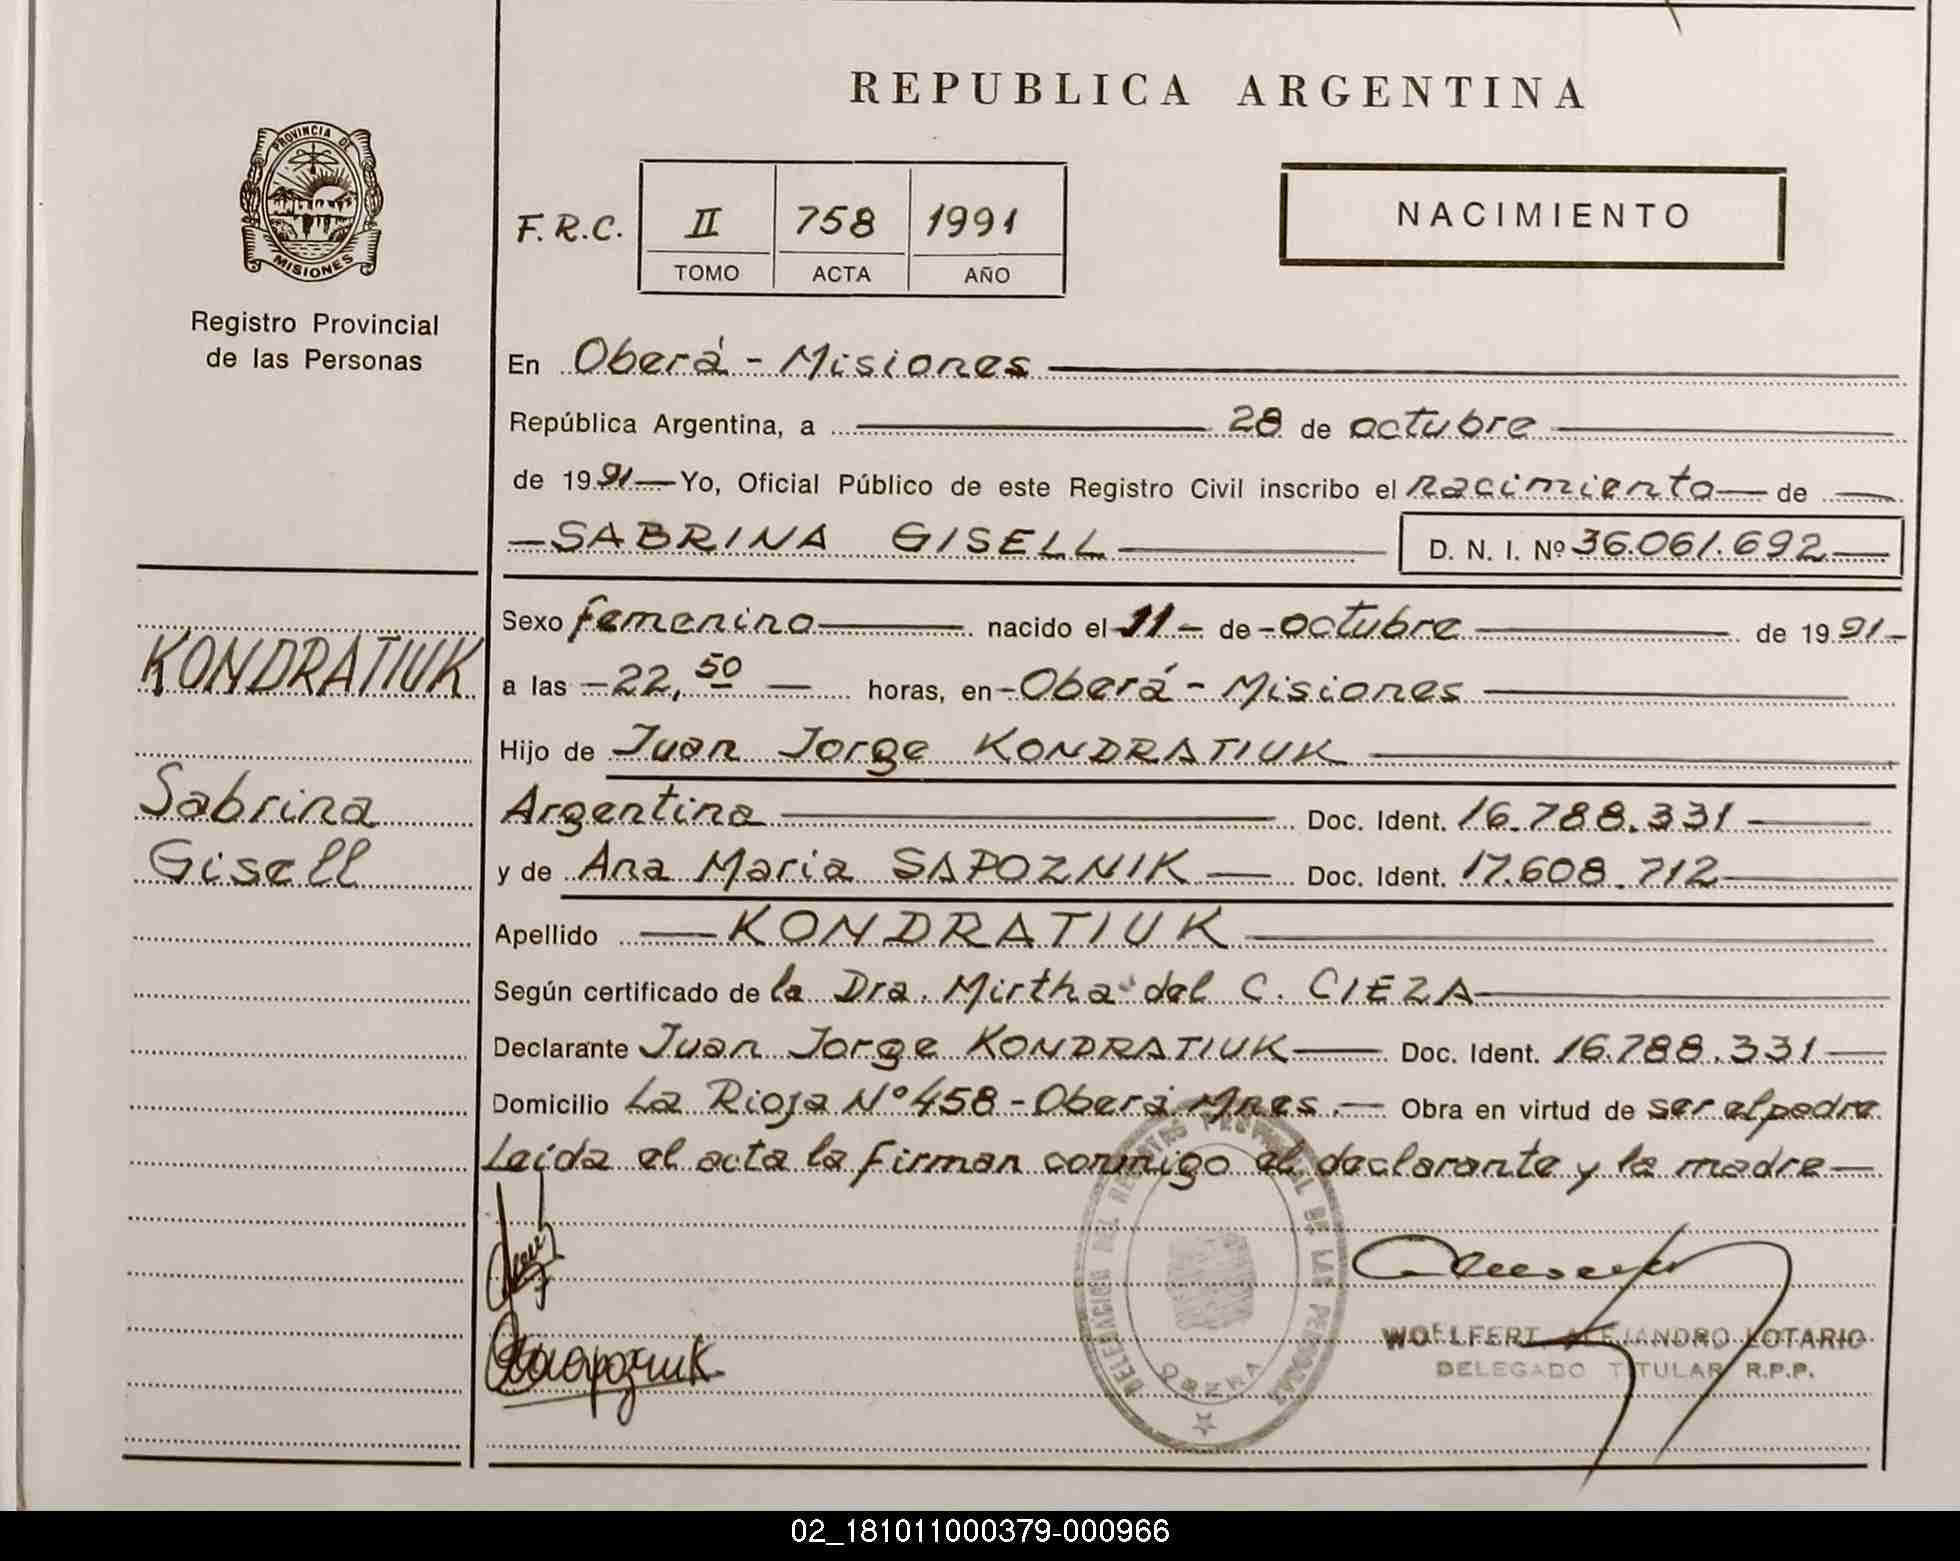 REPUBLICA ARGENTINA
PROVINCIA DE
MISIONES
Registro Provincial
de las Personas
F.R.C. II 758 1991
TOMO ACTA AÑO
NACIMIENTO
En Oberá - Misiones
República Argentina, a 28 de octubre
de 1991 Yo, Oficial Público de este Registro Civil inscribo el nacimiento de
SABRINA GISELL D. N. I. Nº 36.061.692
KONDRATIUK
Sabrina
Gisell
Sexo femenino nacido el 11 - de - octubre de 1991 -
a las - 22,50 horas, en - Oberá - Misiones
Hijo de Juan Jorge KONDRATIUK
Argentina Doc. Ident. 16.788.331
y de Ana Maria SAPOZNIK Doc. Ident. 17.608.712
Apellido KONDRATIUK
Según certificado de la Dra. Mirtha del C. CIEZA
Declarante Juan Jorge KONDRATIUK Doc. Ident. 16.788.331
Domicilio La Rioja Nº 458 - Oberá Mnes. Obra en virtud de ser el padre
Leída el acta la firman conmigo el declarante y la madre
DELEGACION DEL PROVINCIAL DE LAS PERSONAS
OBERA
WOELFERT ALEJANDRO LOTARIO
DELEGADO TITULAR R.P.P.
02_181011000379-000966